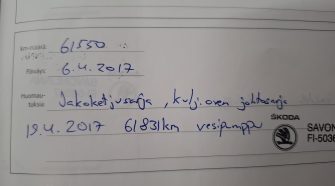 km-määrä: 61550
Päiväys: 6.4.2017
Huomau-
tuksia: Jakoketjusarja, kulj.oven johtosarja
19.4.2017 61831km vesipumppu
ŠKODA
SAVON
FI-5036